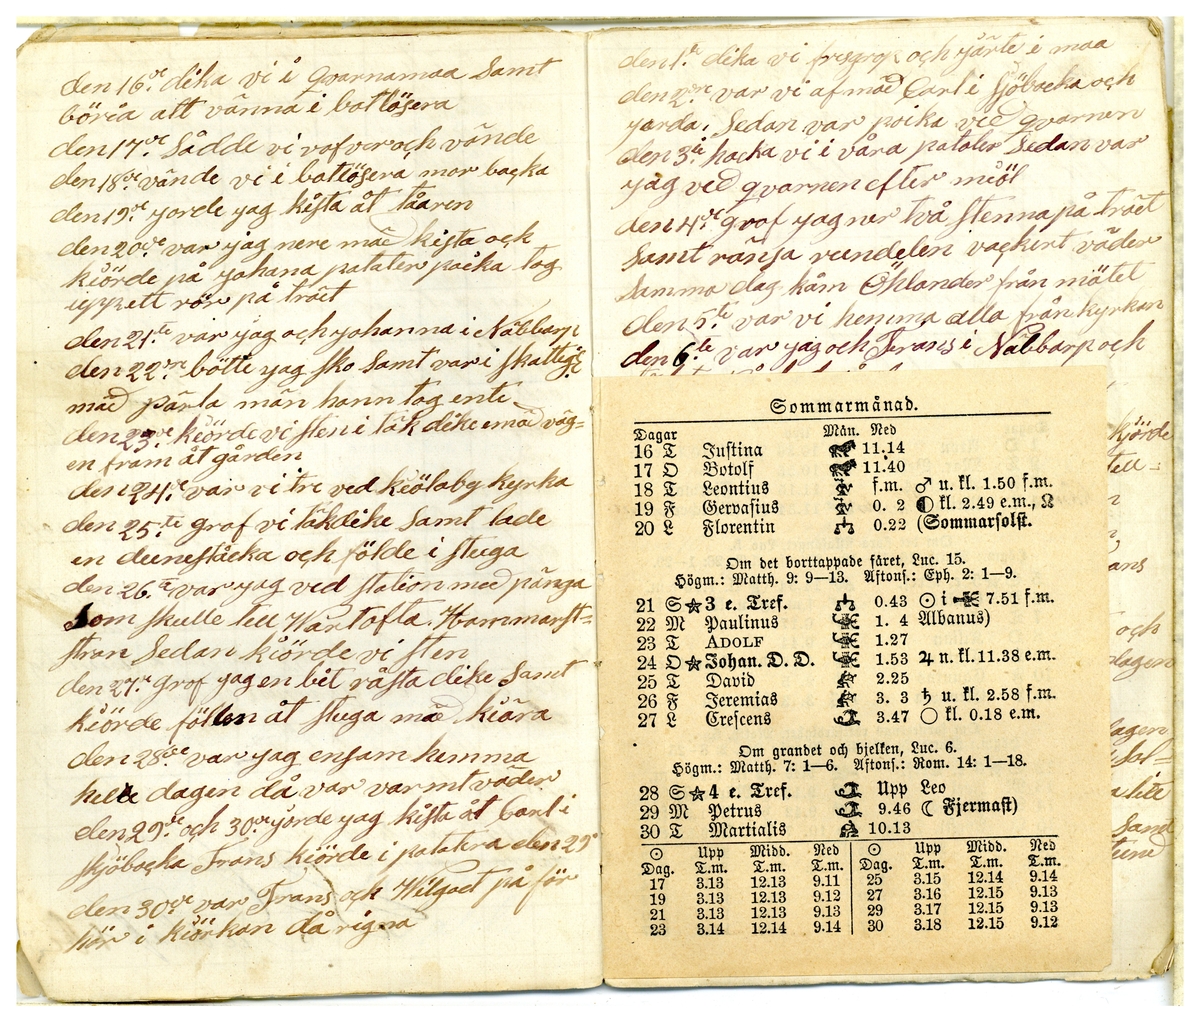 den 16de dika vi i qvarnamaa Samt
böria att vänna i battlösera
den 17de Sådde vi vafver och vände
den 18de vände vi i battlösera mor backa
den 19de yorde yag kista åt tåaren
den 20de var yag nere mäd kista ock
kiörde på yohana patater påcka tog
upp ett rör på trået
den 21te var yag och yohanna i Näbbarp
den 22re bötte yag sko Samt var i skattegs
mäd pärla män hann tog ente
den 23de kiörde vi sten i täkdike emäd väg=
en fram åt gården
den 24de var vi tre ved kiölaby kyrka
den 25te graf vi täkdike Samt lade
en deenestäcka och földe i stuga
den 26te var yag ved station med pänga
Som skulle till Wartofta Hammarst=
stran Sedan kiörde vi sten
den 27de graf yag en bit råsta dike Samt
kiörde föllen åt stuga mäd kiära
den 28de var yag ensam hemma
hela dagen då var varmt väder
den 29de och 30de yorde yag kista åt Carl i
Skjöbacka Frans kiörde i patatera den 29de
den 30de var Frans och Wilgott på för
hör i kiörkan då rigna
den 1te dika vi och yärte i maa
den 2re var vi af mäd Carl i Sjöbacka och
yorda. Sedan var poika ved qvarnen
den 3ie hacka vi i våra patater Sedan var
yag ved qvarnen efter miöl
den 4de graf yag ner två stenna på trået
Samt ränsa rundelen vackert väder
Samma dag kåm Öhlander från mötet
den 5te var vi hemma alla från kyrkan
den 6te var yag och Frans i Näbbarp och
kjörde
till=
ans
och
dagen
lagen
Sol=
a lite
Samt
Sommarmånad.
Dagar Mån. Ned
16 T Justina 11.14
17 O Botolf 11.40
18 T Leontius f.m. ♂ u. kl. 1.50 f.m.
19 F Gervasius 0. 2 ◐ kl. 2.49 e.m., ☊
20 L Florentin 0.22 (Sommarsolst.
Om det borttappade fåret, Luc. 15.
Högm.: Matth. 9: 9—13. Aftons.: Eph. 2: 1—9.
21 S ★ 3 e. Tref. ♎ 0.43 ☉ i 7.51 f.m.
22 M Paulinus 1. 4 Albanus)
23 T ADOLF 1.27
24 O ★ Johan. D. D. 1.53 ♃ n. kl. 11.38 e.m.
25 T David 2.25
26 F Jeremias 3. 3 ♄ u. kl. 2.58 f.m.
27 L Crescens 3.47 ○ kl. 0.18 e.m.
Om grandet och bjelken, Luc. 6.
Högm.: Matth. 7: 1—6. Aftons.: Rom. 14: 1—18.
28 S ★ 4 e. Tref. Upp Leo
29 M Petrus 9.46 ☾ Fjermast)
30 T Martialis 10.13
☉ Upp Midd. Ned ☉ Upp Midd. Ned
Dag. T.m. T.m. T.m. Dag. T.m. T.m. T.m.
17 3.13 12.13 9.11 25 3.15 12.14 9.14
19 3.13 12.13 9.12 27 3.16 12.15 9.13
21 3.13 12.13 9.13 29 3.17 12.15 9.13
23 3.14 12.14 9.14 30 3.18 12.15 9.12